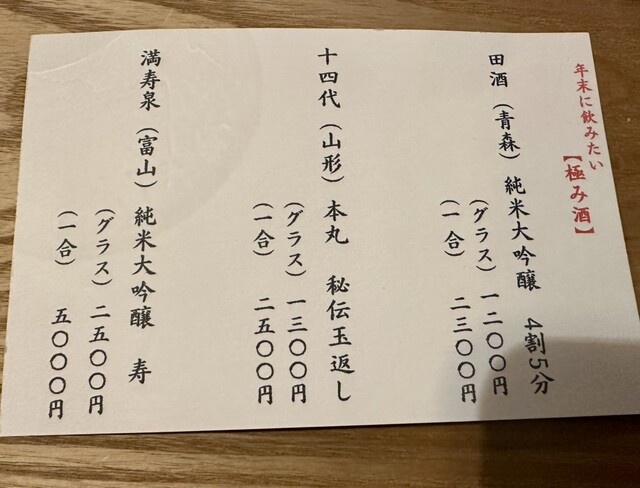 年末に飲みたい
【極み酒】
田酒（青森）純米大吟醸 4割5分
（グラス）一二〇〇円
（一合）二三〇〇円
十四代（山形）本丸 秘伝玉返し
（グラス）一三〇〇円
（一合）二五〇〇円
満寿泉（富山）純米大吟醸 寿
（グラス）二五〇〇円
（一合）五〇〇〇円